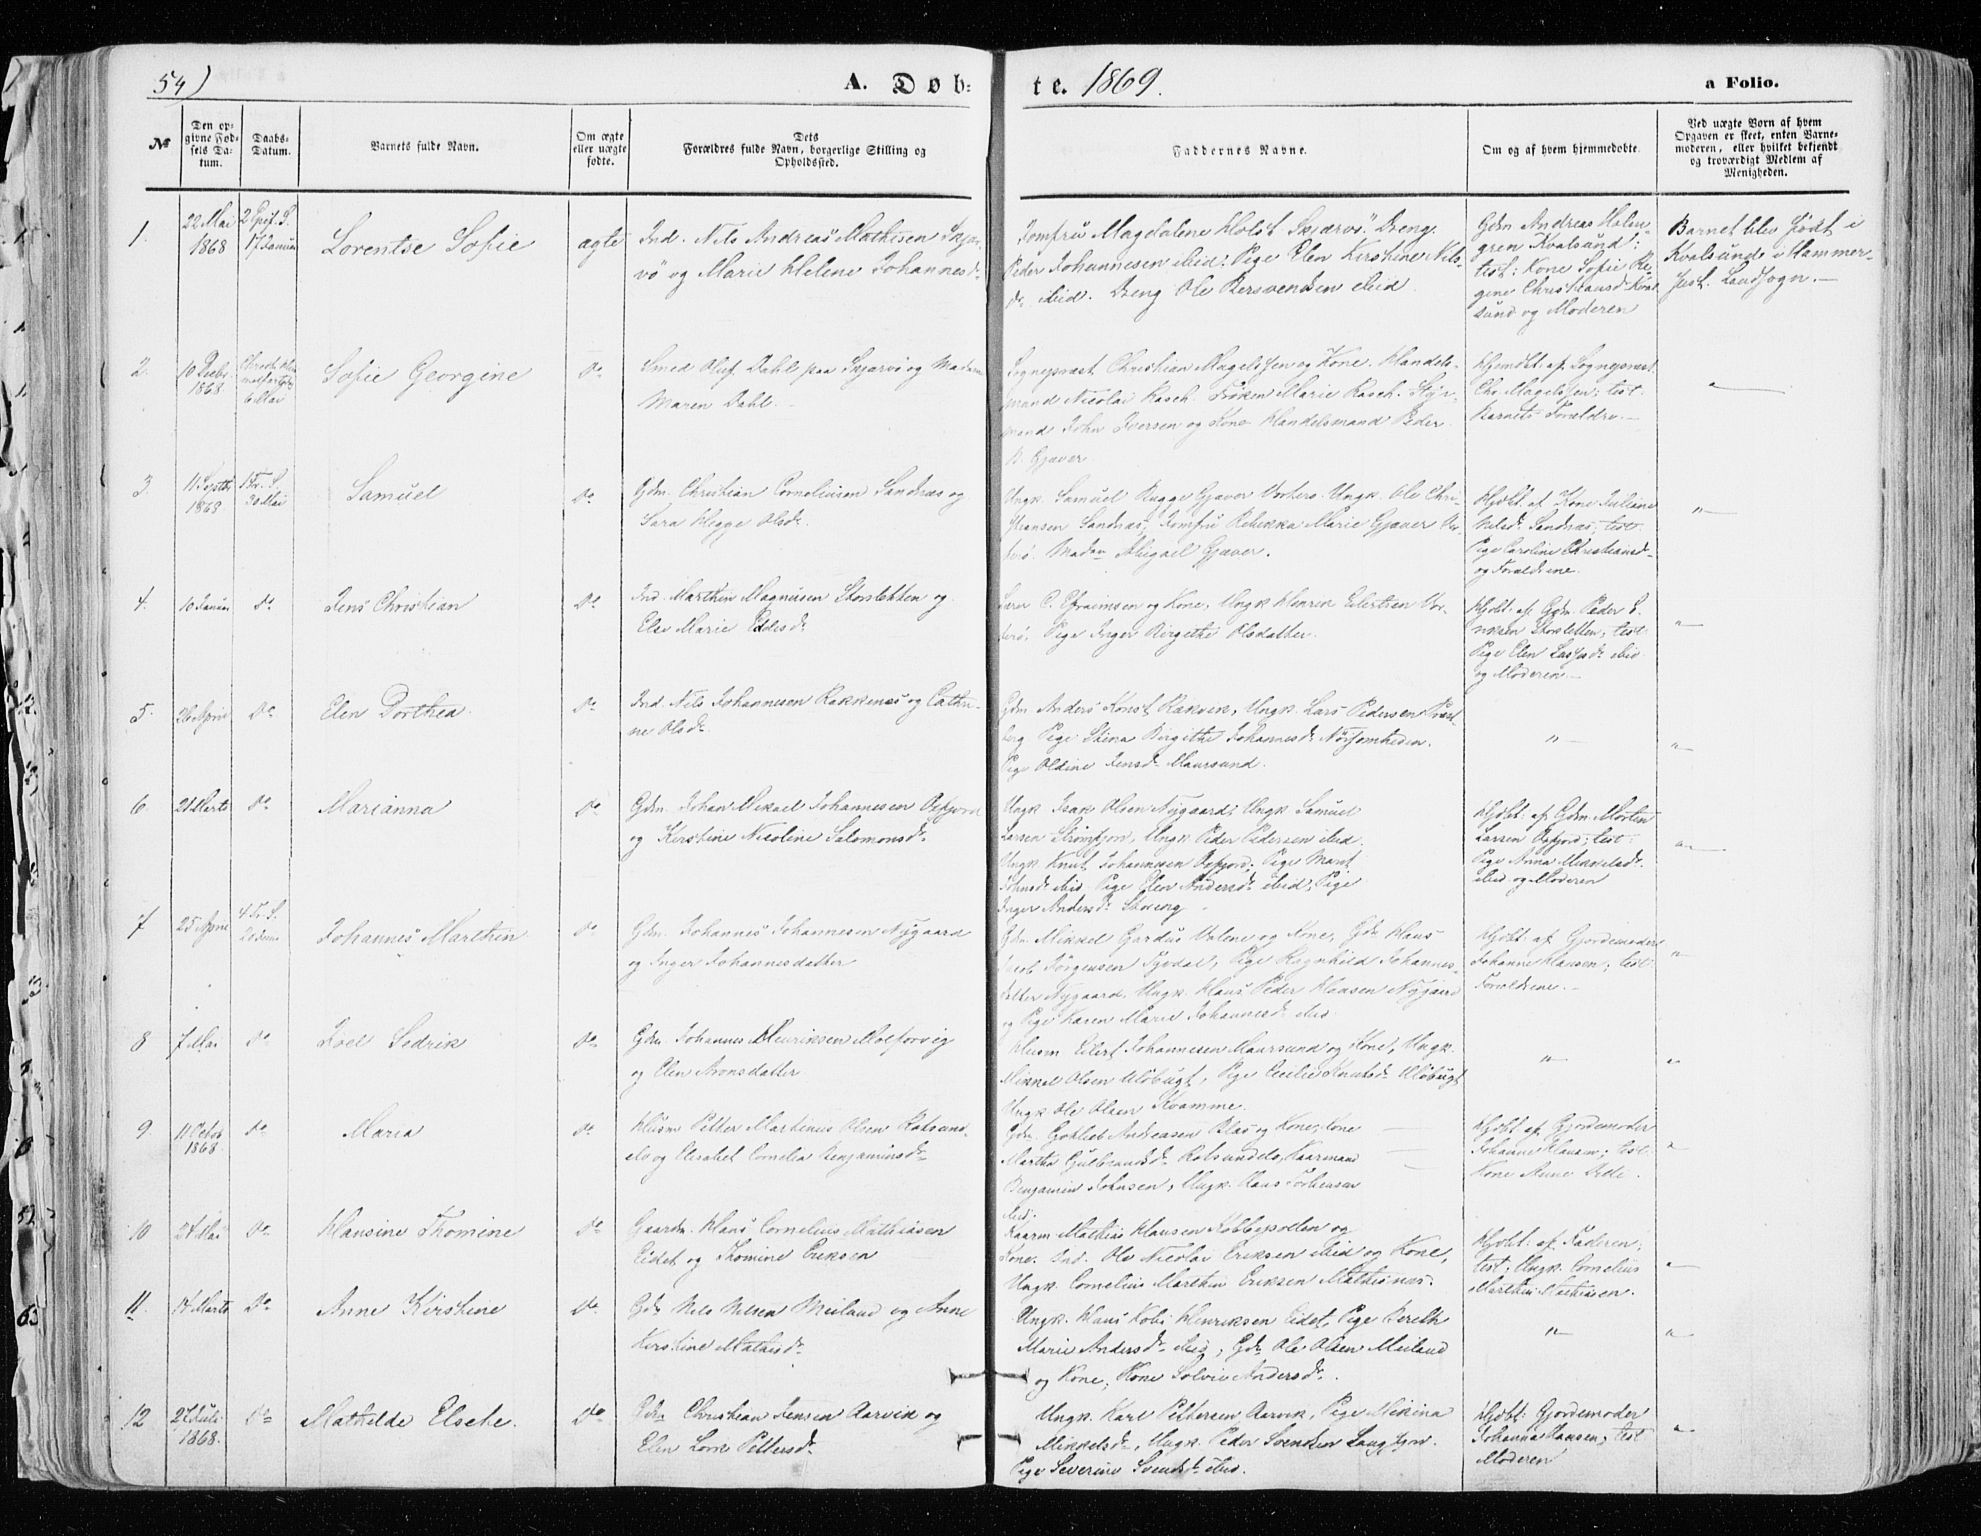 54)
A. Døb:
te. 1869.
a Folio.
№
Den op-
givne Fød-
sels Da-
tum.
Daabs-
Datum.
Barnets fulde Navn.
Om ægte
eller uægte
fødte.
Dets
Forældres fulde Navn, borgerlige Stilling og
Opholdssted.
Faddernes Navne.
Om og af hvem hjemmedøbte.
Ved uægte Børn af hvem
Opgaven er skeet, enten Barne-
moderen, eller hvilket bekjendt
og troværdigt Medlem af
Menigheden.
1.
22 Mai
1868
2 Epif. S.
17 Januar
Lorentse Sofie
ægte
Ind. Nils Andreas Mathisen Skjær-
vö og Marie Helene Johannesd.
Jomfru Magdalene Holst Skjærvö. Dreng
Peder Johannesen ibid. Pige Elen Kirstine Nils-
d. ibid. Dreng Ole Bersvendsen ibid.
Gdm Andreas Holm-
gren Kvalsund;
test: Kone Sofie Re-
gine Christiansd. Kval
sund og Moderen
Barnet blev født i
Kvalsund i Hammer-
fest Landsogn.
2.
10 Decbr
1868
6 Mai
Sofie Georgine
do
Smed Oluf Dahl paa Skjærvö og Madam
Maren Dahl.
Sognepræst Christian Magelssen og Kone. Handels-
mand Nicolai Rasch. Frøken Marie Rasch. Styr-
mand John Iversen og Kone Handelsmand Peder
B. Gjæver
Hjemdbt. af Sognepræst
Chr. Magelssen; test.
Barnets Forældre.
3
11 Septbr
1868
1 Tr. S.
30 Mai
Samuel
do
Gdm. Christian Corneliusen Sandnæs og
Sara Hegge Olsd.
Ungk. Samuel Hegge Gjæver Vorterø. Ungk. Ole Chri-
stiansen Sandnæs, Jomfru Rebekka Marie Gjæver Vor-
terø. Madam Abigael Gjæver.
Hjdbt. af Kone Juliane
Nilsd. Sandnæs, test.
Pige Caroline Christiansd.
og Forældrene.
4.
10 Januar
do
Jens Christian
do
Ind. Marthin Magnusen Storsletten og
Else Marie Eddisd.
C. Efraimsen og Kone, Ungk Henrik Eilertsen Vor-
terø. Pige Inger Birgithe Olsdatter.
Hjdbt. af Gdm. Peder E-
riksen Storsletten; test.
Pige Elen Lassesd. ibid
og Moderen.
5.
26 April
do
Elen Dorthea.
do
Ind. Nils Johannesen Bakkenæs og Cathri-
ne Olsd.
Gdm Anders Konst Rakvik, Ungk. Lars Pedersen Præst-
berg Pige Stena Birgithe Johannesd.
Pige Oldine Jensd. Maursund.
6.
21 Marts
do
Marianna
do
Gdm. Johan Mikael Johannesen Oxfjord
og Kirstine Nicoline Salomonsd.
Ungk Isak Olsen Nygaard; Ungk Samuel
Larsen Strömfjord, Ungk Peder Pedersen ibid.
Ungk Knut Johannesen Oxfjord; Pige Marit
Johnsd. ibid. Pige Elen Andersd. ibid, Pige
Inger Andersd.
Hjdbt: af Gdm. Morten
Larsen Oxfjord; test:
Pige Anna Mikkelsd.
ibid og Moderen
7
25 April
4 Tr. S.
20 Juni
Johannes Marthin
do
Gdm. Johannes Johannesen Nygaard
og Inger Johannesdatter
Gdm. Mikkel og Kone, Gdm Hans
Jacob Jörgensen Fosdal, Pige Ragnhild Johannes-
datter Nygaard. Ungk. Hans Peder Hansen Nygaard
og Pige Karen Marie Johannesd. ibid
Hjdbt. af Gjordemoder
Johanne Hansen; test:
Forældrene.
8
7 Mai
do
Joel Sedrik
do
Gdm. Johannes Henriksen Molforvig
og Elen Aronsdatter
Husm Eilert Johannesen Maursund og Kone; Ungk.
Mikkel Olsen Uløbugt, Pige Cecilie Knutsd. Uløbugt
Ungk Ole Olsen Kvamme.
9
11 Octob
1868
do
Maria
do
Husm Petter Martinus Olsen Rotsund-
elv og Elisabet Cornelia Benjaminsd.
Gdm. Gotlieb Andreasen Blas og Kone; Kone
Martha Gulbransd. Rotsundelv, Kaarmand
Benjamin Johnsen, Ungk. Hans Torbensen
ibid.
Hjdbt af Gjordemoder
Johanne Hansen; test.
Kone Anne
10
24 Mai
do
Hansine Thomine
do
Gaardm. Hans Cornelius Mathiasen
Eidet og Thomine Eriksen
Kaarm Mathias Hansen Kobbepollen og
Kone. Ind. Ole Nicolai Eriksen ibid og Kone,
Ungk. Cornelius Marthin Eriksen Mathisnæs.
Hjdbt: af Faderen;
test: Ungk Cornelius
Marthin Mathisen.
11.
14 Marts
do
Anne Kirstine
do
Gdm Nils Nilsen Meiland og Anne
Kirstine Mathisd.
Ungk. Hans Kobi Henriksen Eidet, Pige Bereth
Marie Andersd. ibid; Gdm Ole Olsen Meiland
og Kone; Kone Solvei Andersd.
12
27 Juli
1868.
do
Mathilde Elsche.
do
Gdm Christian Jensen Aarvik og
Elen Lovise Pettersd.
Ungk. Karl Pettersen Aarvik, Pige Mikina
Mikkelsd., Ungk. Peder Svendsen Langfjord.
Pige Severine Svendsd. ibid.
Hjdbt: Gjordemoder
Johanna Hansen; test
Moderen